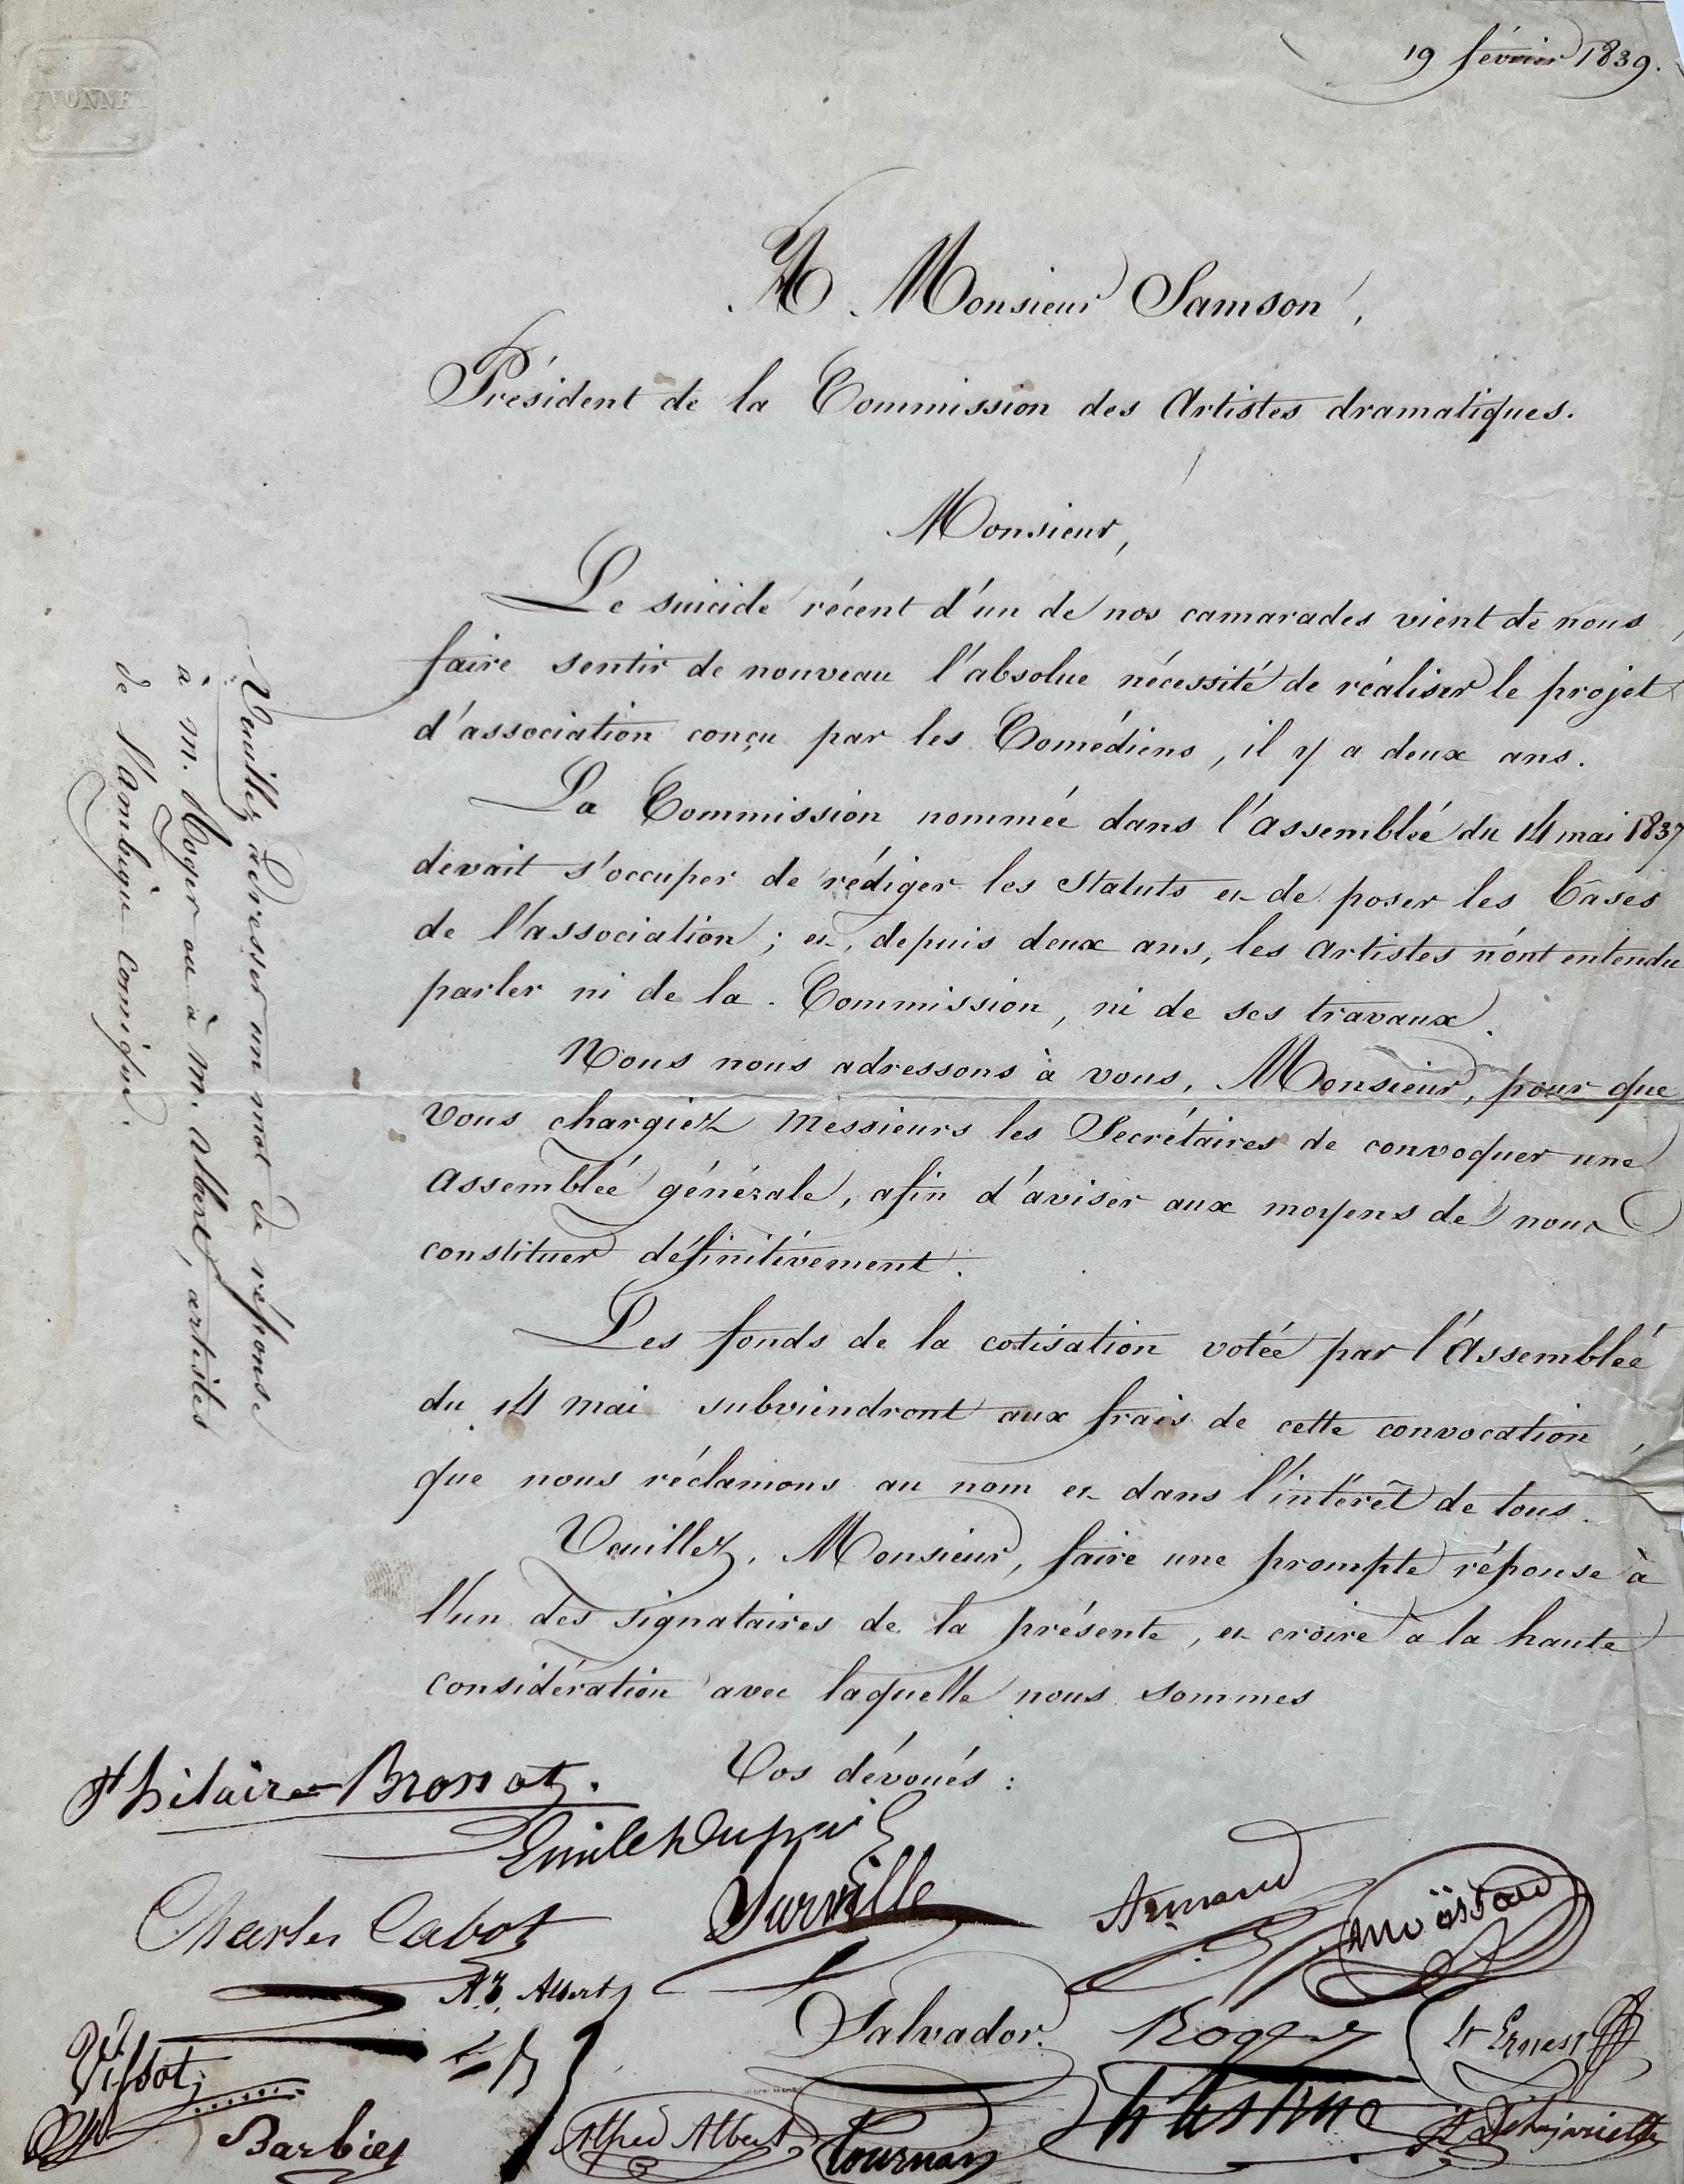 19 février 1839.
YVONNE
A Monsieur Samson,
Président de la Commission des Artistes dramatiques.
Monsieur,
Le suicide récent d'un de nos camarades vient de nous
faire sentir de nouveau l'absolue nécessité de réaliser le projet
d'association conçu par les Comédiens, il y a deux ans.
La Commission nommée dans l'assemblée du 14 mai 1837
devait s'occuper de rédiger les Statuts et de poser les bâses
de l'association ; et, depuis deux ans, les artistes n'ont entendu
parler ni de la Commission, ni de ses travaux.
Nous nous adressons à vous, Monsieur, pour que
vous chargiez Messieurs les Secrétaires de convoquer une
assemblée générale, afin d'aviser aux moyens de nous
constituer définitivement.
Les fonds de la cotisation votée par l'Assemblée
du 14 mai subviendront aux frais de cette convocation,
que nous réclamons au nom et dans l'intérêt de tous.
Veuillez, Monsieur, faire une prompte réponse à
l'un des signataires de la présente, et croire à la haute
considération avec laquelle nous sommes
Vos dévoués :
Veuillez adresser un mot de réponse
à M. Roger ou à M. Albert, artistes
de l'ambigu-comique.
St hilaire Bronnot.
Emile Dupuis
Charles Cabot
Surville
Armand
Moëssard
Az. Albert
Salvador.
Roger
St Ernest
Vissot
Barbier
Alfred Albert
Cournan